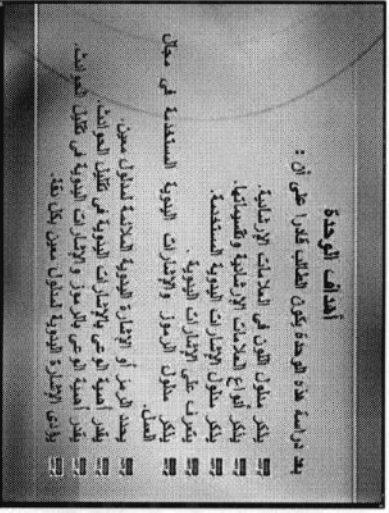 أهداف الوحدة
بعد دراسة هذه الوحدة يكون الطالب قادرا على أن :
يذكر مدلول اللون فى العلامات الإرشادية.
يذكر أنواع العلامات الإرشادية وتقسيماتها.
يذكر مدلول الإشارات اليدوية المستخدمة.
يتعرف على الإشارات اليدوية .
يذكر مدلول الرموز والإشارات اليدوية المستخدمة فى مجال
العمل.
يحدد الرمز أو الإشارة اليدوية الملائمة لمدلول معين.
يقدر أهمية الوعى بالإشارات اليدوية فى تقليل الحوادث.
يقدر أهمية الوعى بالرموز والإشارات اليدوية فى تقليل الحوادث.
يؤدى الإشارة اليدوية لمدلول معين بكل دقة.